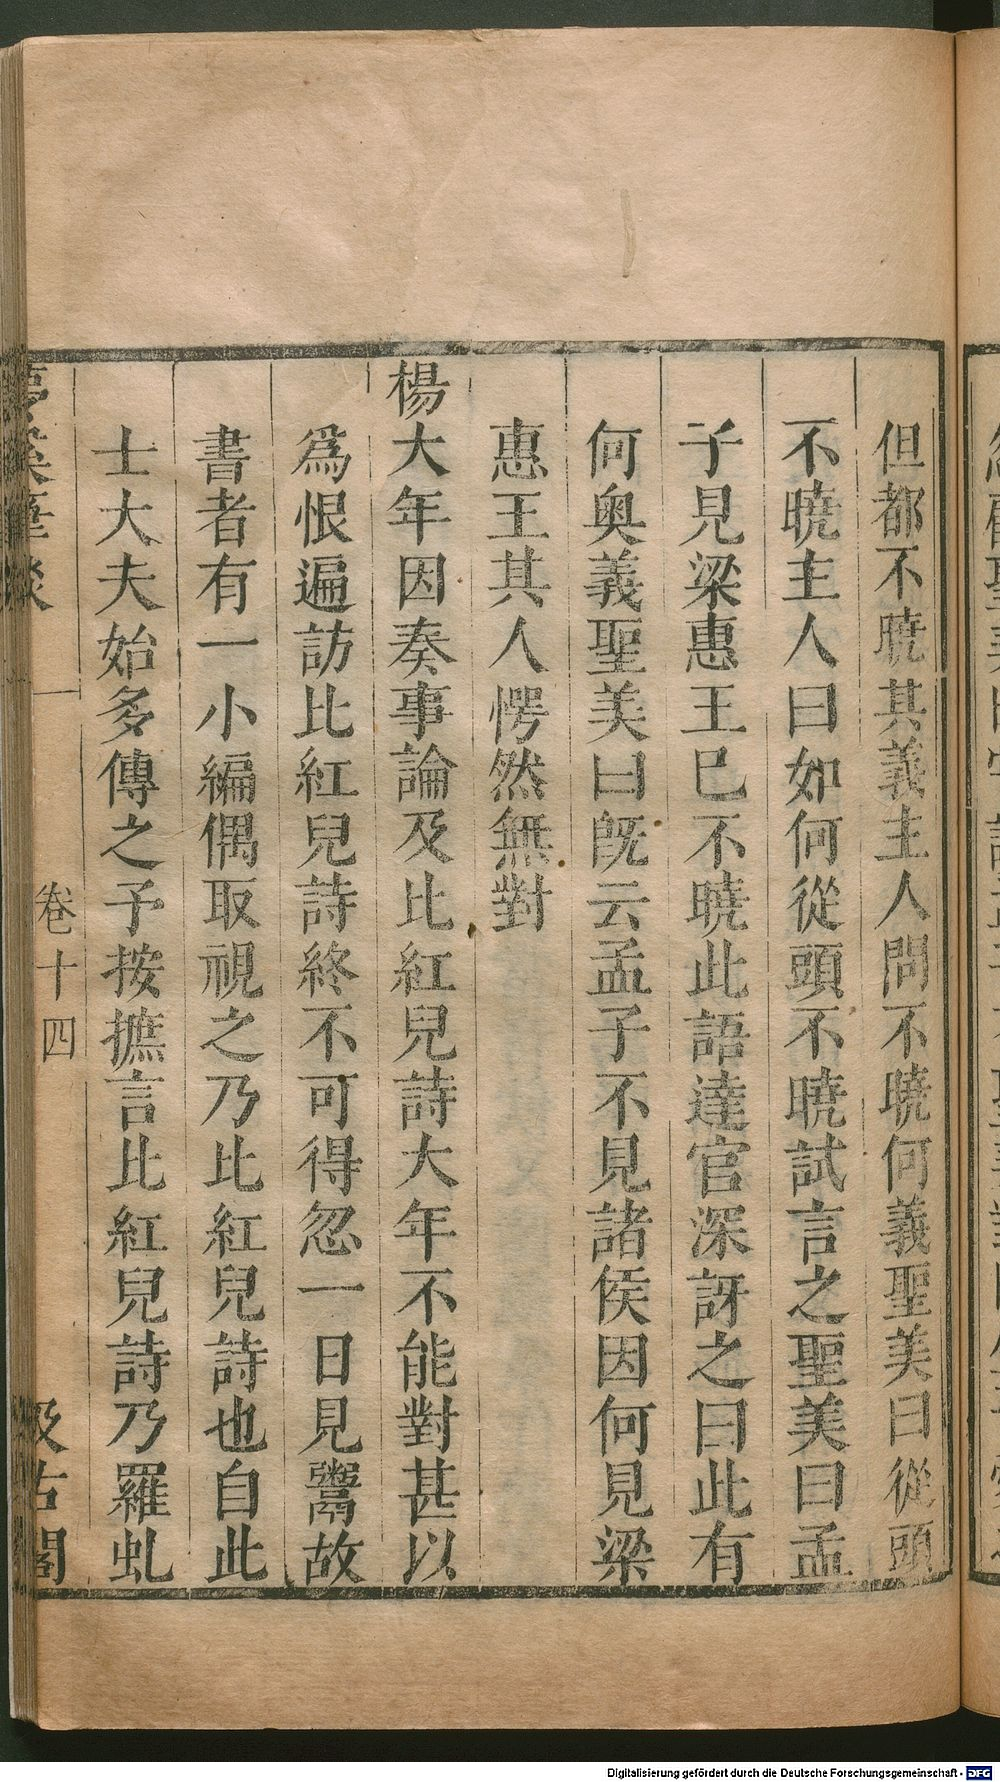 但都不曉其義主人問不曉何義聖美曰從頭
不曉主人曰如何從頭不曉試言之聖美曰孟
子見梁惠王巳不曉此語達官深訝之曰此有
何奥義聖美曰旣云孟子不見諸侯因何見梁
惠王其人愕然無對
楊大年因奏事論及比紅兒詩大年不能對甚以
爲恨遍訪比紅兒詩終不可得忽一日見鬻故
書者有一小編偶取視之乃比紅兒詩也自此
士大夫始多傳之予按摭言比紅兒詩乃羅虬
夢溪筆談 卷十四 汲古閣
Digitalisierung gefördert durch die Deutsche Forschungsgemeinschaft - DFG